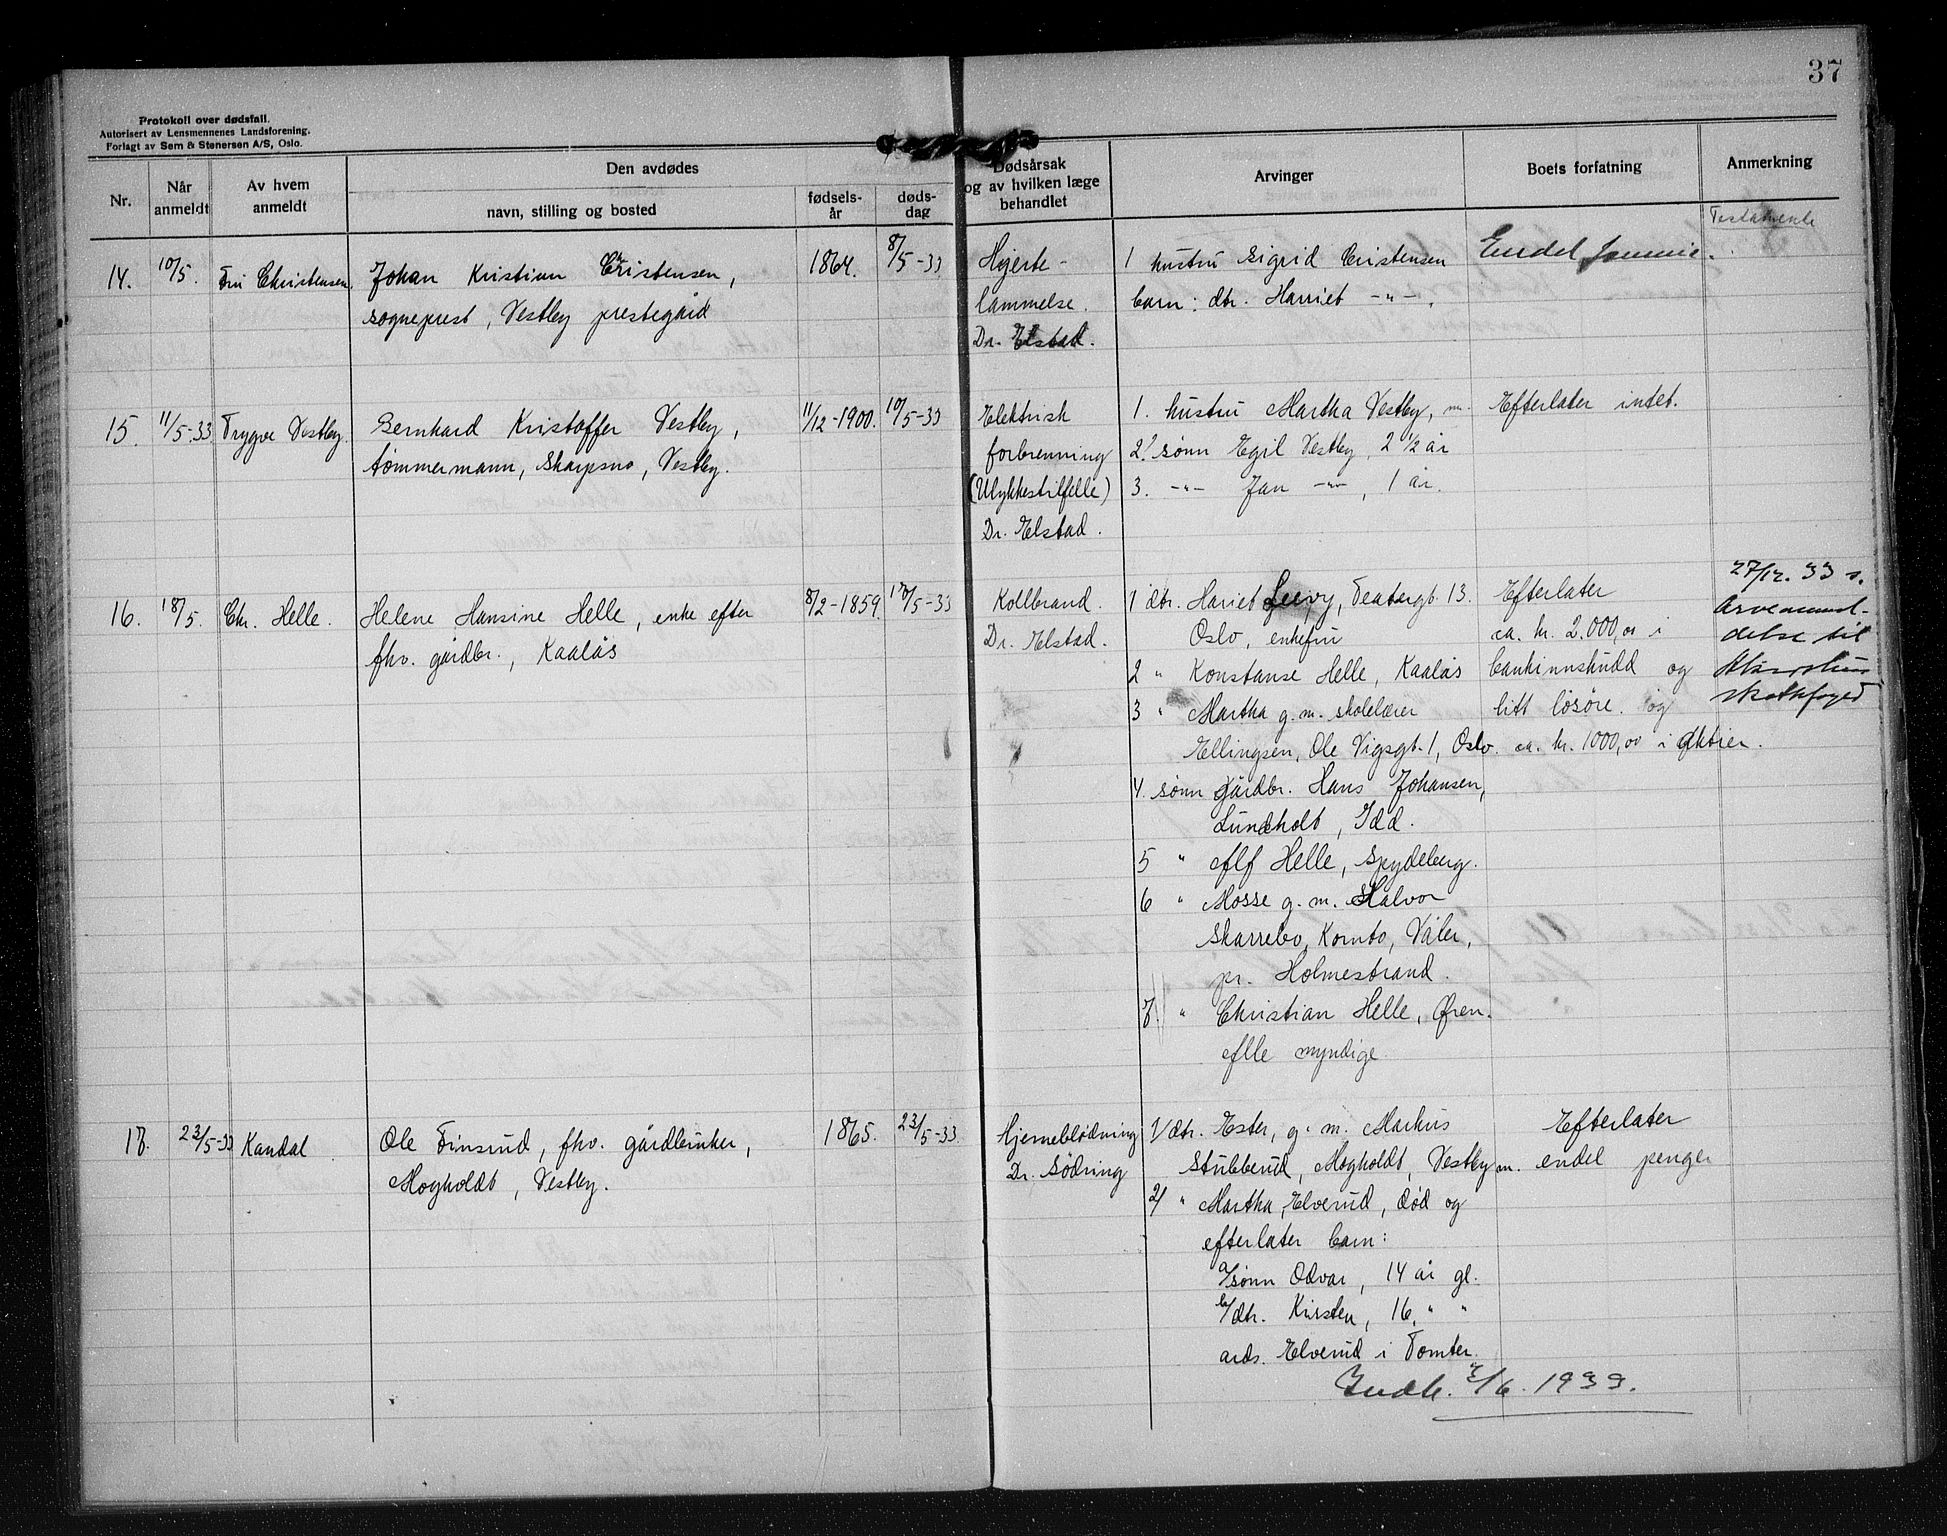 37
Protokoll over dødsfall.
Autorisert av Lensmennenes Landsforening.
Forlagt av Sem & Stenersen A/S, Oslo.
Nr.
Når anmeldt
Av hvem anmeldt
Den avdødes
navn, stilling og bosted
fødsels-
år
døds-
dag
Dødsårsak
og av hvilken læge
behandlet
Arvinger
Boets forfatning
Anmerkning
14. 10/5. Fru Christensen. Johan Kristian Christensen, 1864. 8/5-33
sogneprest, Vestby prestegård
Hjerte-
lammelse.
Dr. Elstad.
1 hustru Sigrid Cristensen
barn: dtr. Harriet -"-.
Endel
Testamente
15. 11/5-33 Trygve Vestby. Bernhard Kristoffer Vestby, 11/12-1900. 10/5-33
tømmermann, Skarpsno, Vestby.
Elektrisk
forbrenning
(Ulykkestilfelle)
Dr. Elstad.
1. hustru Martha Vestby, m.
2. sønn Egil Vestby, 2 1/2 år
3. -"- Jan -"-, 1 år.
Efterlater intet.
16. 18/5. Chr. Helle. Helene Hansine Helle, enke efter 8/2-1859. 17/5-33
fhv. gårdbr., Kaalås
Kollbrand.
Dr. Elstad.
1 dtr. Hariet Leevy, Teatergt. 13.
Oslo, enkefru
2 " Konstanse Helle, Kaalås
3 " Martha g.m. skolelærer
Ellingsen, Ole Vigsgt. 1, Oslo.
4. sønn gårdbr. Hans Johansen,
Lundeholt, Idd.
5 " Alf Helle, Spydeberg.
6 " Mosse g.m. Halvor
Skarrebo, Kombo, Våler,
pr. Holmestrand.
7. " Christian Helle, Øren.
Alle myndige.
Efterlater
ca. kr. 2.000,00 i
bankinnskudd og
litt løsøre. og
ca. kr. 1000,00 i aktier.
27/12. 33 s.
Arveanmel-
delse til
skattefoged
17. 23/5-33 Kandal Ole Finsrud, fhv. gårdbruker, 1865. 23/5-33
Mogholdt, Vestby.
Hjerneblødning
Dr. Sødring
1/ dtr. Ester, g.m. Markus
Stubberud, Mogholdt, Vestby m.
2/ " Martha, Elverud, død og
efterlater barn:
a/ sønn Odvar, 14 år gl.
b/ dtr. Kirsten, 16 " "
ards. Elverud i Tomter.
Efterlater
endel penger
Indb. /6. 1933.